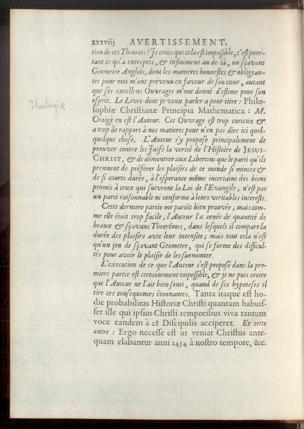 xxxviij AVERTISSEMENT.
tion de ces Theories? Je crois que cela est impossible, c'est pour-
tant ce qu'a entrepris, & infiniment au de là, un sçavant
Geometre Anglois, dont les manieres honnestes & obligean-
tes pour moi m'ont prévenu en faveur de son cœur, autant
que ses excellens Ouvrages m'ont donné d'estime pour son
esprit. Le Livre dont je veux parler a pour titre: Philo-
sophiæ Christianæ Principia Mathematica: M.
Craigë en est l'Auteur. Cet Ouvrage est trop curieux &
a trop de rapport à nos matieres pour n'en pas dire ici quel-
quelque chose. L'Auteur s'y propose principalement de
prouver contre les Juifs la verité de l'Histoire de JESUS-
CHRIST, & de démontrer aux Libertins que le parti qu'ils
prennent de préferer les plaisirs de ce monde si minces &
de si courte durée, à l'esperance même incertaine des biens
promis à ceux qui suivront la Loi de l'Evangile, n'est pas
un parti raisonnable ni conforme à leurs veritables interests.
Cette derniere partie me paroît bien prouvée, mais com-
me elle étoit trop facile, l'Auteur l'a ornée de quantité de
beaux & sçavans Theorêmes, dans lesquels il compare la
durée des plaisirs avec leur intensité; mais tout cela n'est
qu'un jeu de sçavant Geometre, qui se forme des difficul-
tés pour avoir le plaisir de les surmonter.
L'execution de ce que l'Auteur s'est proposé dans la pre-
miere partie est certainement impossible, & je ne puis croire
que l'Auteur ne l'ait bien senti, quand de ses hypoteses il
tire ces consequences étonnantes. Tanta itaque est ho-
die probabilitas Historiæ Christi quantam habuis-
set ille qui ipsius Christi temporibus viva tantum
voce eandem à 28 Discipulis acciperet. Et cette
autre: Ergo necesse est ut veniat Christus ante-
quam elabantur anni 1454 à nostro tempore, &c.